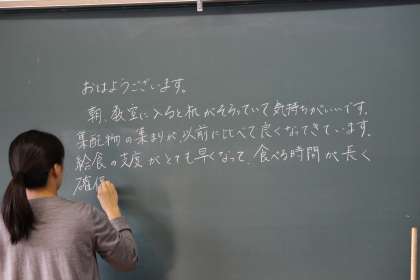 おはようございます。
朝、教室に入ると机がそろっていて気持ちがいいです。
集配物の集まりが、以前に比べて良くなってきています。
給食の支度がとても早くなって、食べる時間が長く
確保